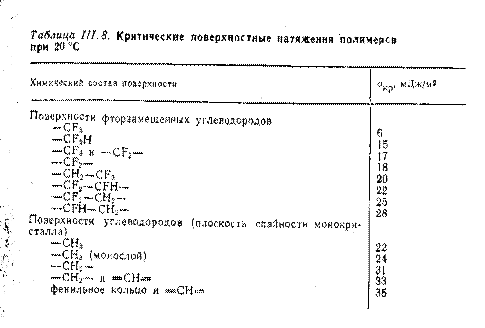 Таблица III.8. Критические поверхностные натяжения полимеров
при 20 °C
Химический состав поверхности
σкр, мДж/м²
Поверхности фторзамещенных углеводородов
—CF₃ 6
—CF₂H 15
—CF₃ и —CF₂— 17
—CF₂— 18
—CH₂—CF₃ 20
—CF₂—CFH— 22
—CF₂—CH₂— 25
—CFH—CH₂— 28
Поверхности углеводородов (плоскость спайности монокри-
сталла)
—CH₃ 22
—CH₃ (монослой) 24
—CH₂— 31
—CH₂— и ═CH═ 33
фенильное кольцо и ═CH═ 35